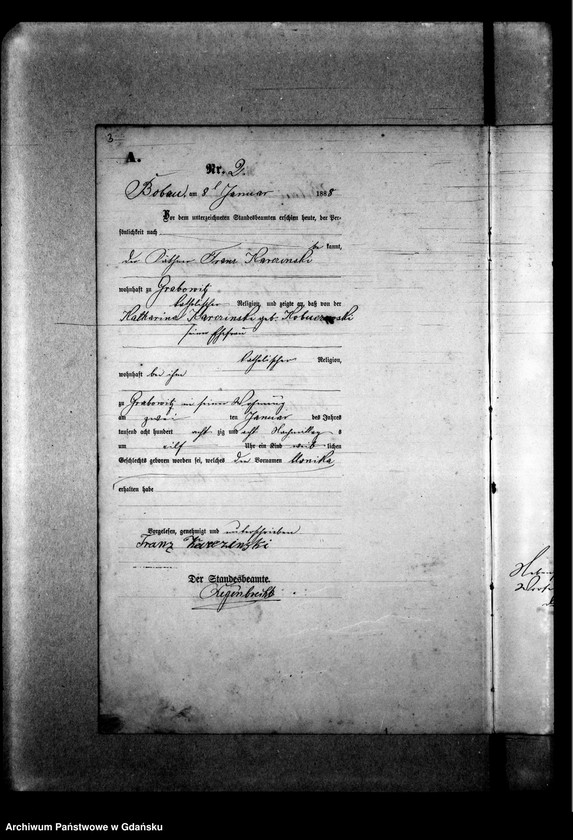 3
A.
Nr. 2.
Bobau, am 8t Januar 1888
Vor dem unterzeichneten Standesbeamten erschien heute, der Per-
sönlichkeit nach
kannt,
der Käthner Franz Karczinski
wohnhaft zu Grabowitz
katholischer Religion, und zeigte an, daß von der
Katharina Karczinski geb.
seiner Ehefrau
katholischer Religion,
wohnhaft bei ihm
zu Grabowitz in seiner Wohnung
am zwei ten Januar des Jahres
tausend acht hundert acht zig und acht Nachmittag s
um eilf Uhr ein Kind weib lichen
Geschlechts geboren worden sei, welches den Vornamen Monika
erhalten habe
Vorgelesen, genehmigt und unterschrieben
Franz Karczinski
Der Standesbeamte.
Regenbrecht
Archiwum Państwowe w Gdańsku